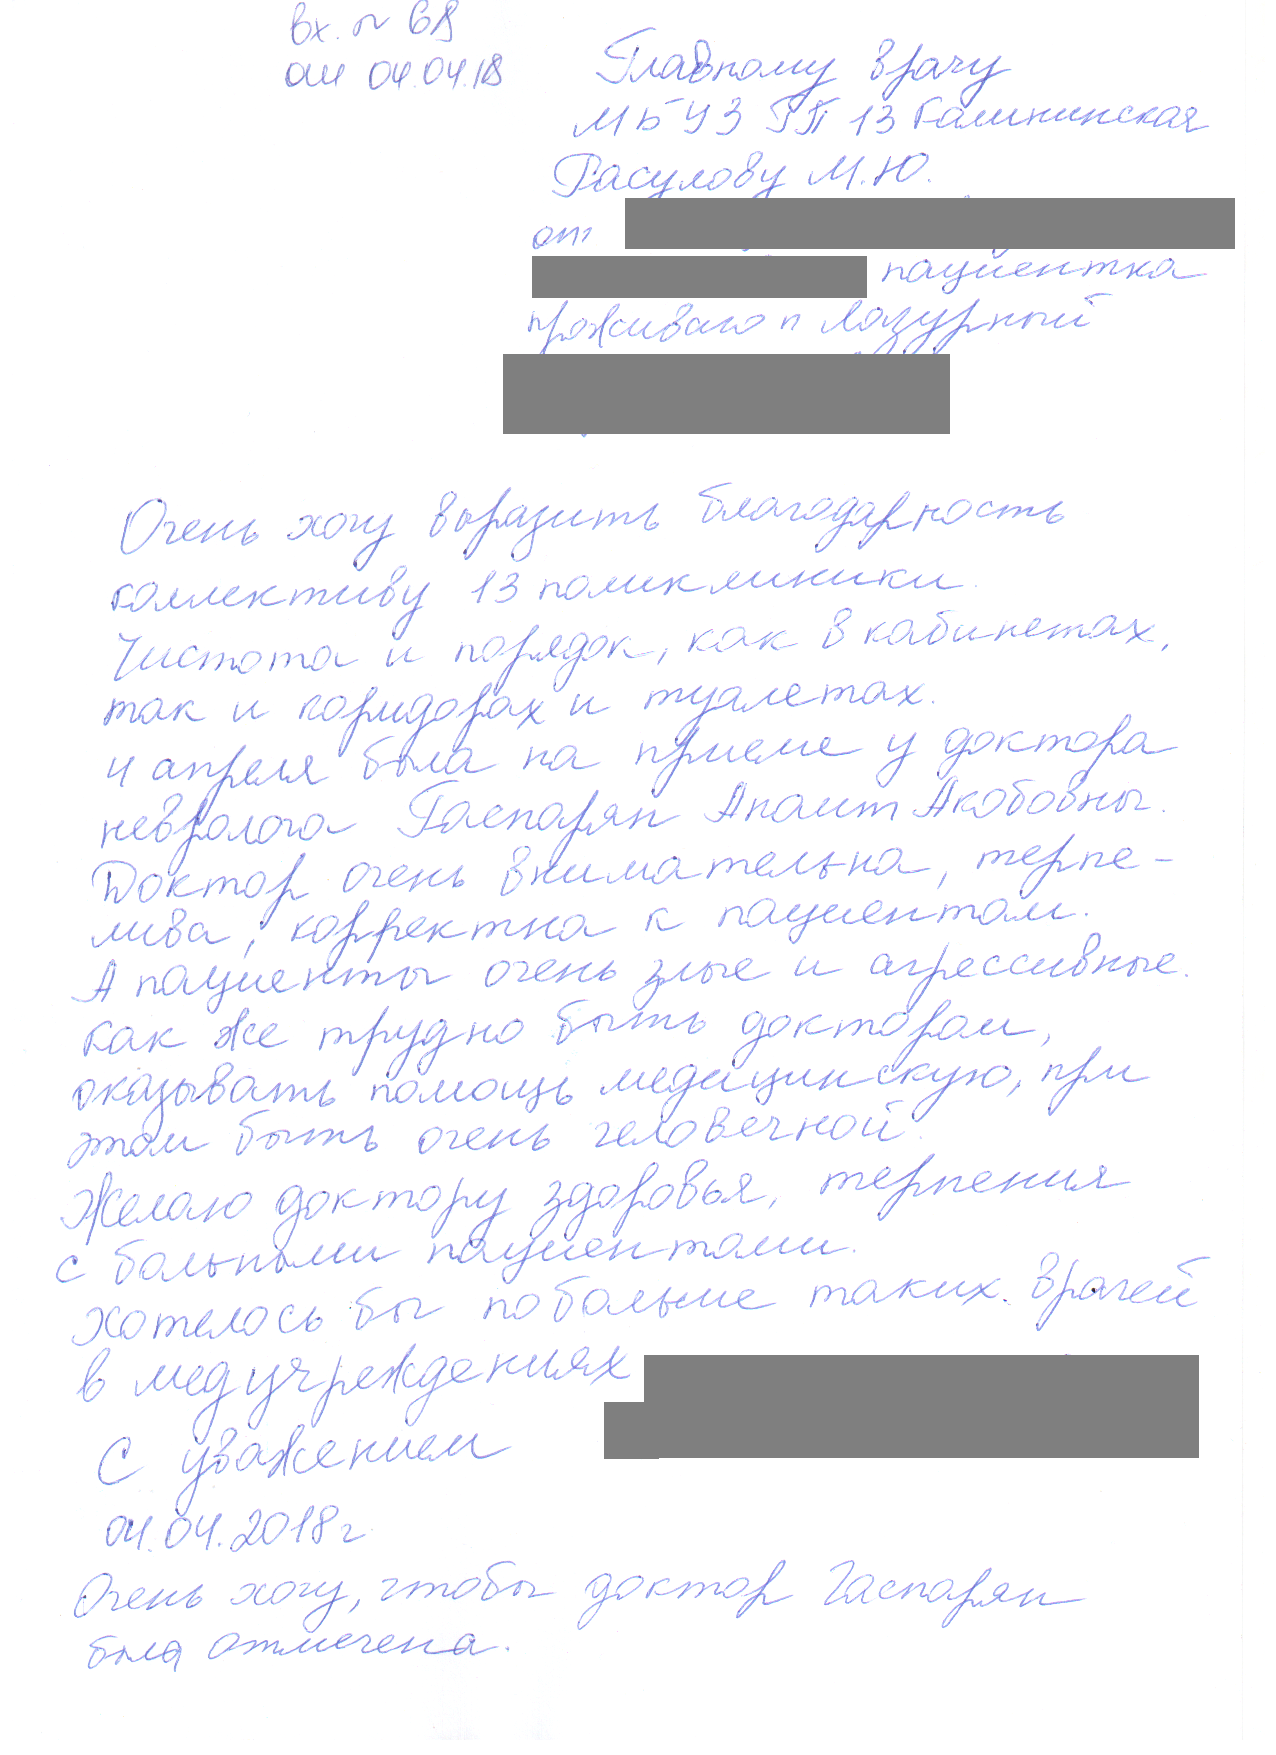 вх. № 68
от 04.04.18
Главному врачу
МБУЗ ГП 13 Калининская
Расулову М.Ю.
от
пациентка
проживаю п Лазурный
Очень хочу выразить благодарность
коллективу 13 поликлиники.
Чистота и порядок, как в кабинетах,
так и коридорах и туалетах.
4 апреля была на приеме у доктора
невролога Гаспарян Анаит Акобовны.
Доктор очень внимательна, терпе-
лива, корректна к пациентам.
А пациенты очень злые и агрессивные.
Как же трудно быть доктором,
оказывать помощь медицинскую, при
этом быть очень человечной.
Желаю доктору здоровья, терпения
с больными пациентами.
Хотелось бы побольше таких врачей
в мед учреждениях
С уважением
04.04.2018 г
Очень хочу, чтобы доктор Гаспарян
была отмечена.